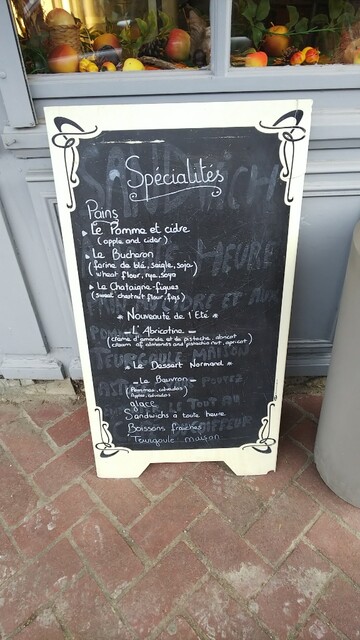 Spécialités
Pains
Le Pomme et cidre
(apple and cider)
Le Bucheron
(farine de blé, seigle, soja)
wheat flour, rye, soya
La Chataigne-figues
(sweet chestnut flour, figs)
* Nouveauté de l'Eté *
- L'Abricotine -
(crème d'amande et de pistache, abricot)
cream of almonds and pistachio nut, apricot)
* Le Dessert Normand *
- Le Beuvron -
(Pommes, calvados)
Apples, calvados)
glace
Sandwichs à toute heure
Boissons fraîches
Teurgoule maison